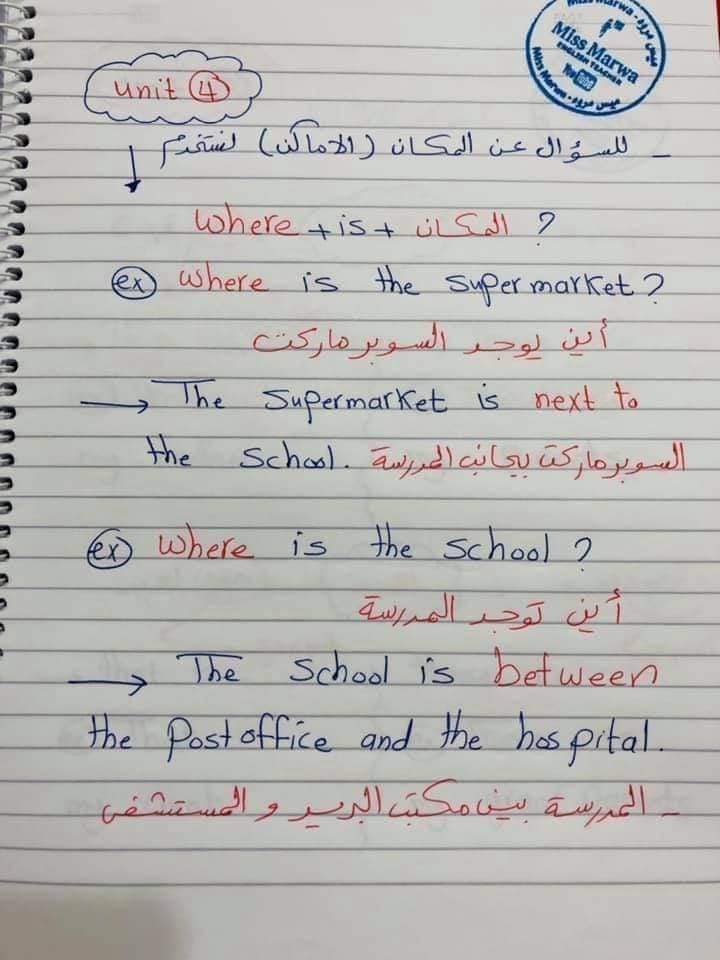 Miss Marwa - ميس مروه
Miss Marwa
ENGLISH TEACHER
YouTube
Miss Marwa - ميس مروه
unit 4
- للسؤال عن المكان (الاماكن) نستخدم
where + is + المكان ?
ex where is the supermarket?
أين يوجد السوبر ماركت
→ The supermarket is next to
the school. السوبر ماركت بجانب المدرسة
ex where is the school?
أين توجد المدرسة
→ The school is between
the Post office and the hospital.
- المدرسة بين مكتب البريد و المستشفى